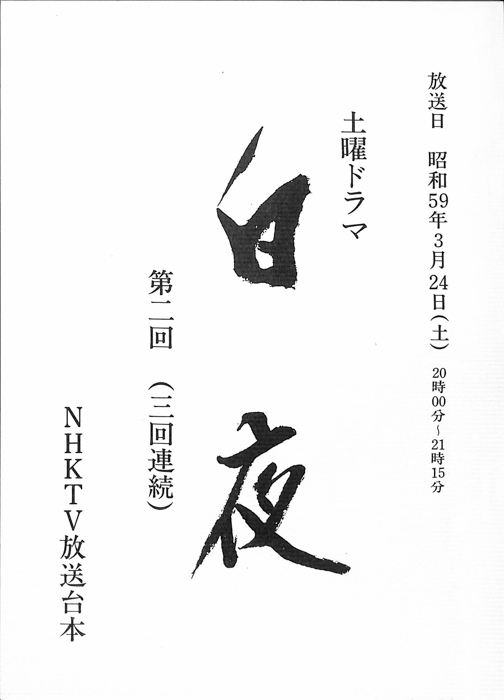 放送日　昭和59年3月24日(土)　20時00分～21時15分
土曜ドラマ
白夜
第二回　(三回連続)
NHKTV放送台本